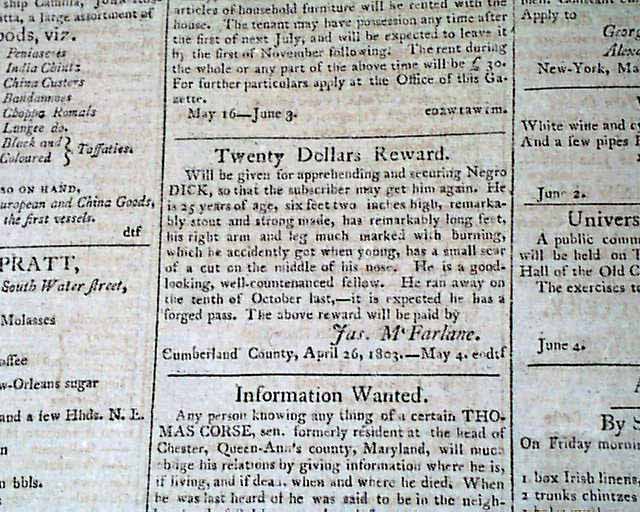 ship Camilla,
a large assortment of
oods, viz.
Peniasces
India Chintz
China Custers
Bandannoes
Choppa Romals
Lungee do.
Black and
Coloured } Taffaties.
SO ON HAND,
uropean and China Goods,
the first vessels.
dtf
PRATT,
South Water street,
Molasses
offee
w-Orleans sugar
and a few Hhds. N. E.
bbls.
articles of household furniture will be rented with the
house. The tenant may have possession any time after
the first of next July, and will be expected to leave it
by the first of November following. The rent during
the whole or any part of the above time will be £ 30.
For further particulars apply at the Office of this Ga-
zette.
May 16—June 3. eo2wtawtm.
Twenty Dollars Reward.
Will be given for apprehending and securing Negro
DICK, so that the subscriber may get him again. He
is 25 years of age, six feet two inches high, remarka-
bly stout and strong made, has remarkably long feet,
his right arm and leg much marked with burning,
which he accidently got when young, has a small scar
of a cut on the middle of his nose. He is a good-
looking, well-countenanced fellow. He ran away on
the tenth of October last,—it is expected he has a
forged pass. The above reward will be paid by
Jas. McFarlane.
Cumberland County, April 26, 1803.—May 4. eodtf
Information Wanted.
Any person knowing any thing of a certain THO-
MAS CORSE, sen. formerly resident at the head of
Chester, Queen-Ann's county, Maryland, will much
oblige his relations by giving information where he is,
if living, and if dead, when and where he died. When
he was last heard of he was said to be in the neigh-
Apply to
Georg
Alex
New-York, Ma
White wine and
And a few pipes
June 2.
Univers
A public comm
will be held on T
Hall of the Old C
The exercises to
June 4.
By S
On Friday mornin
1 box Irish linens,
2 trunks chintzes